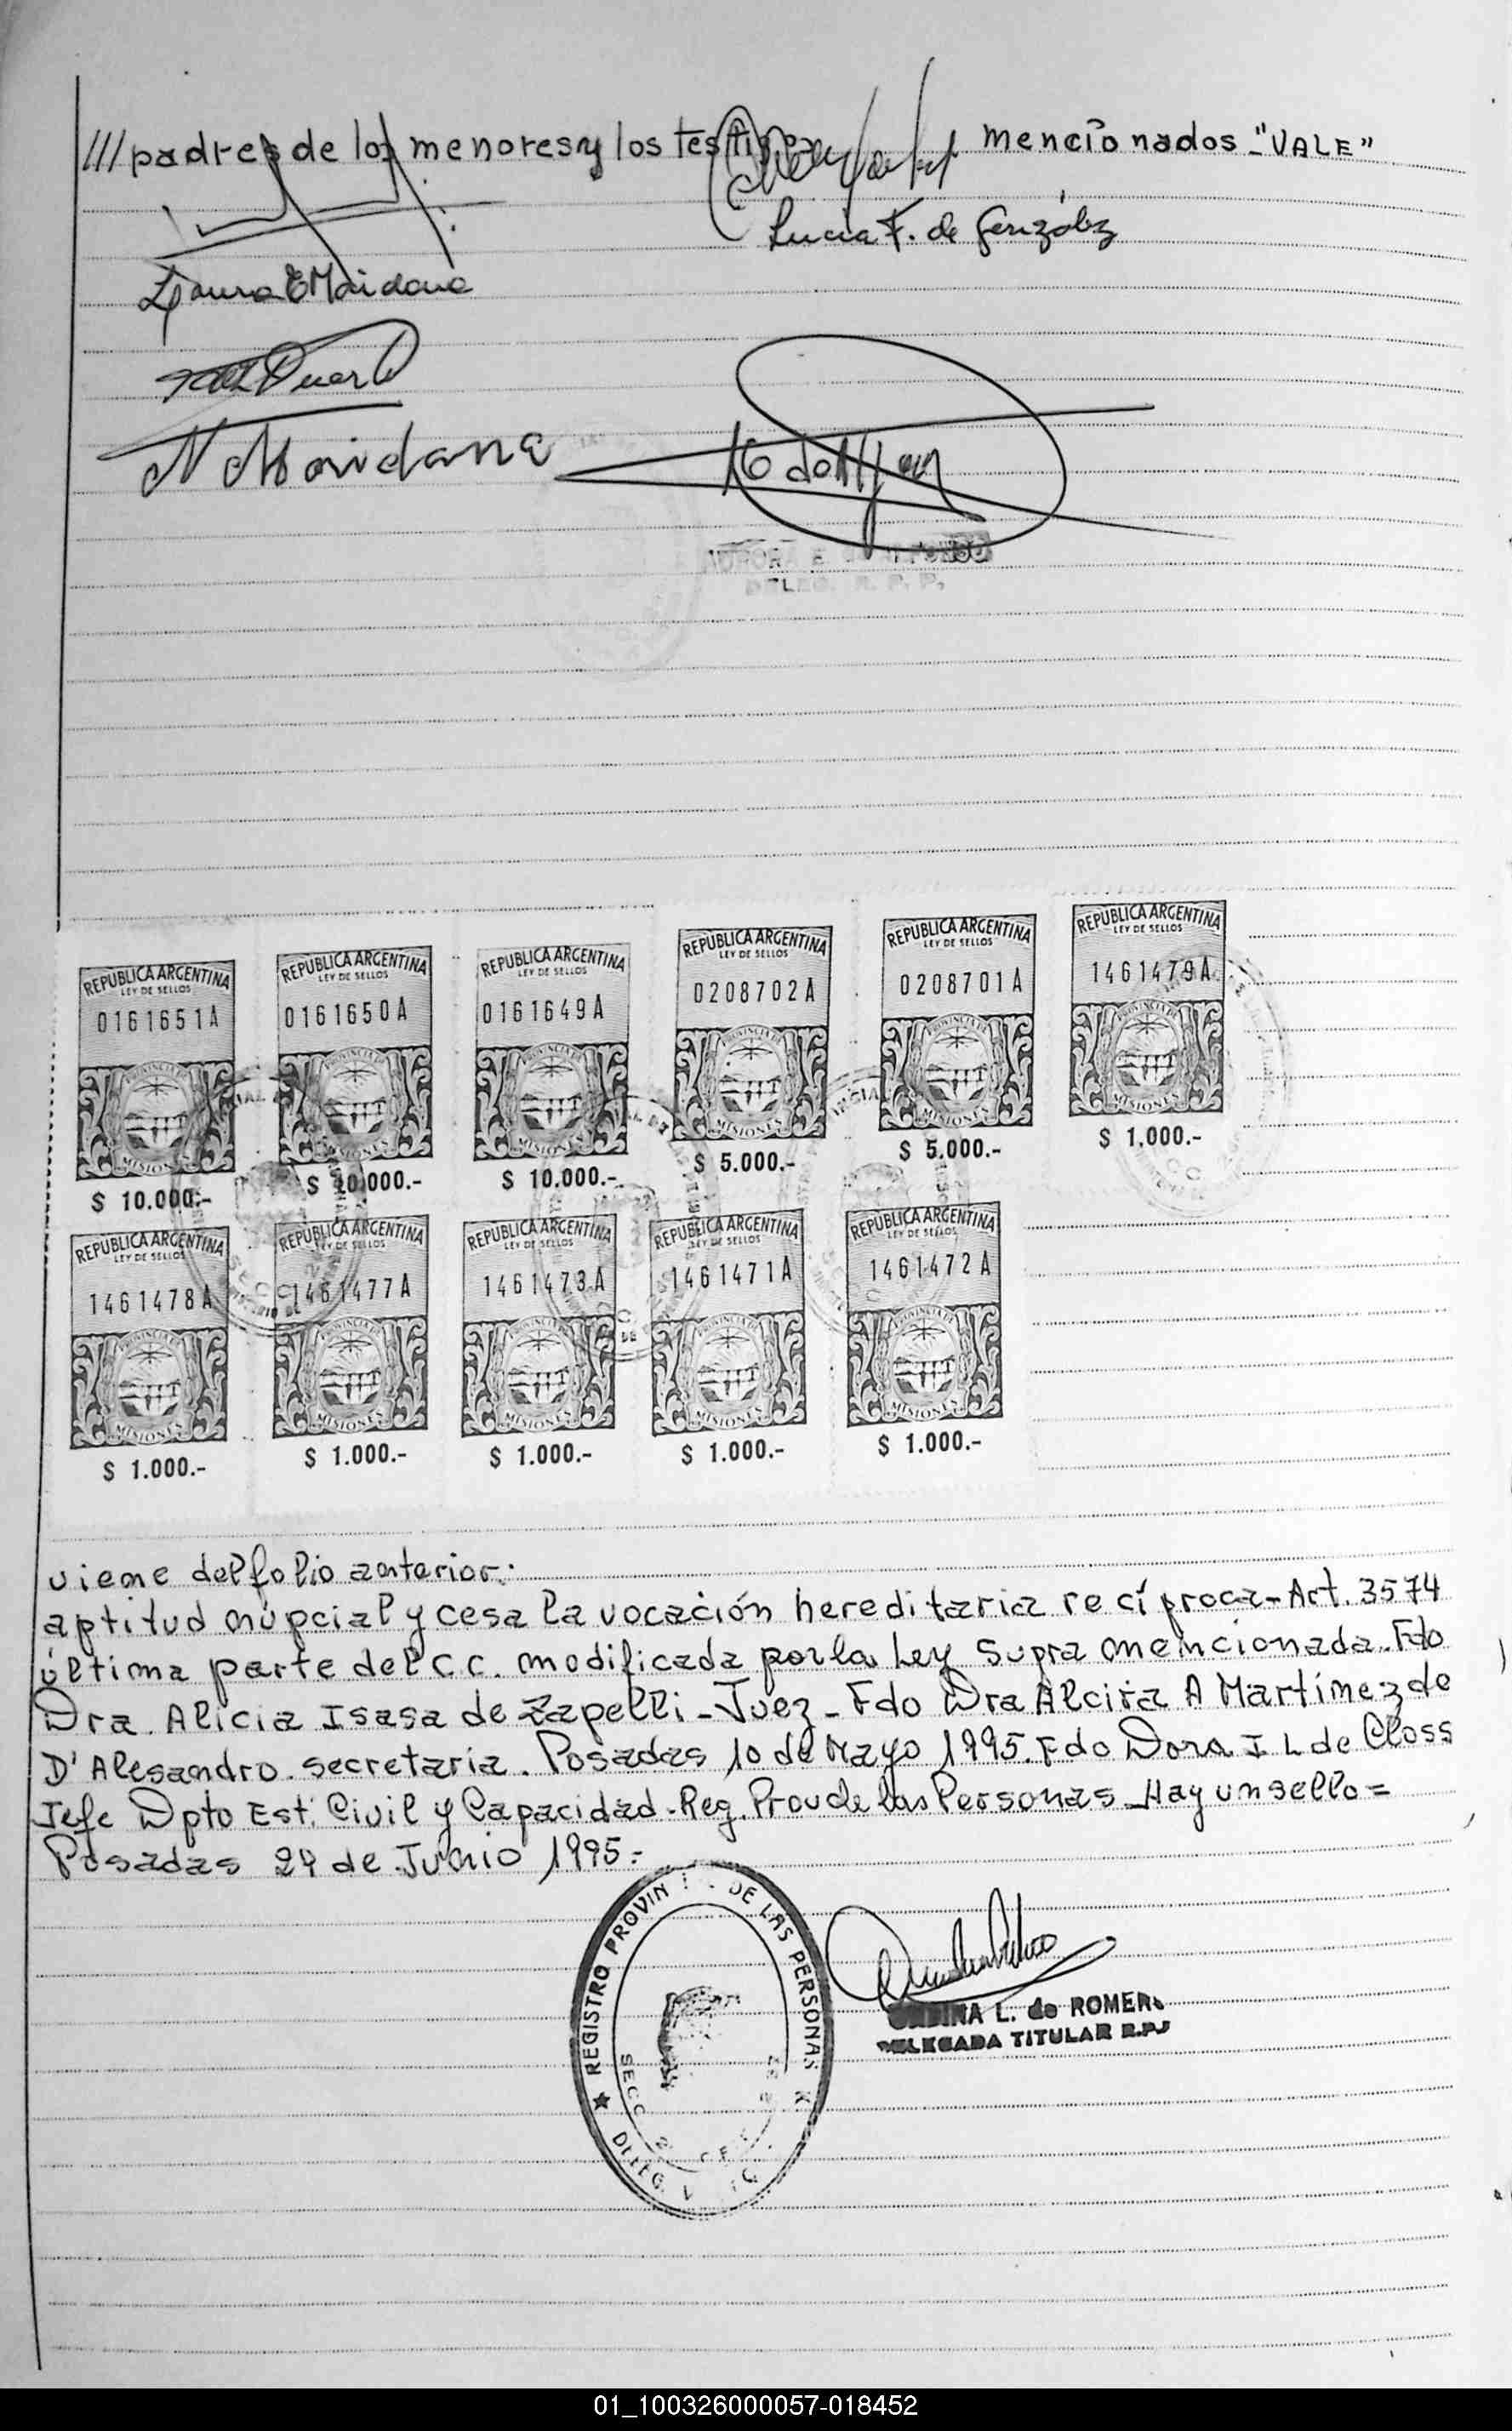 /// padres de los menores y los testigos mencionados - "VALE"
Lucia F. de González
Laura E Maidana
N Maidana
AURORA E.
DELEG. R. P. P.
REPUBLICA ARGENTINA REPUBLICA ARGENTINA REPUBLICA ARGENTINA REPUBLICA ARGENTINA REPUBLICA ARGENTINA REPUBLICA ARGENTINA
LEY DE SELLOS LEY DE SELLOS LEY DE SELLOS LEY DE SELLOS LEY DE SELLOS LEY DE SELLOS
0161651A 0161650A 0161649A 0208702A 0208701A 1461479A
PROVINCIA DE PROVINCIA DE PROVINCIA DE PROVINCIA DE PROVINCIA DE PROVINCIA DE
MISIONES MISIONES MISIONES MISIONES MISIONES MISIONES
$ 10.000.- $ 10.000.- $ 10.000.- $ 5.000.- $ 5.000.- $ 1.000.-
REPUBLICA ARGENTINA REPUBLICA ARGENTINA REPUBLICA ARGENTINA REPUBLICA ARGENTINA REPUBLICA ARGENTINA
LEY DE SELLOS LEY DE SELLOS LEY DE SELLOS LEY DE SELLOS LEY DE SELLOS
1461478A 1461477A 1461473A 1461471A 1461472A
PROVINCIA DE PROVINCIA DE PROVINCIA DE PROVINCIA DE PROVINCIA DE
MISIONES MISIONES MISIONES MISIONES MISIONES
$ 1.000.- $ 1.000.- $ 1.000.- $ 1.000.- $ 1.000.-
viene del folio anterior.:
aptitud núpcial y cesa la vocación hereditaria recíproca - Art. 3574
última parte del C.C. modificada por la Ley Supra mencionada. Fdo
Dra. Alicia Isasa de Zapelli - Juez - Fdo Dra Alcira A Martínez de
D'Alesandro. secretaria. Posadas 10 de Mayo 1995. Fdo Dora I L de Closs
Jefe Dpto Est. Civil y Capacidad. Reg. Prov de las Personas Hay un sello =
Posadas 29 de Junio 1995.-
REGISTRO PROVIN DE LAS PERSONAS
SECC 2
DELEG.
L. de ROMERO
DELEGADA TITULAR R.P.P
01_100326000057-018452